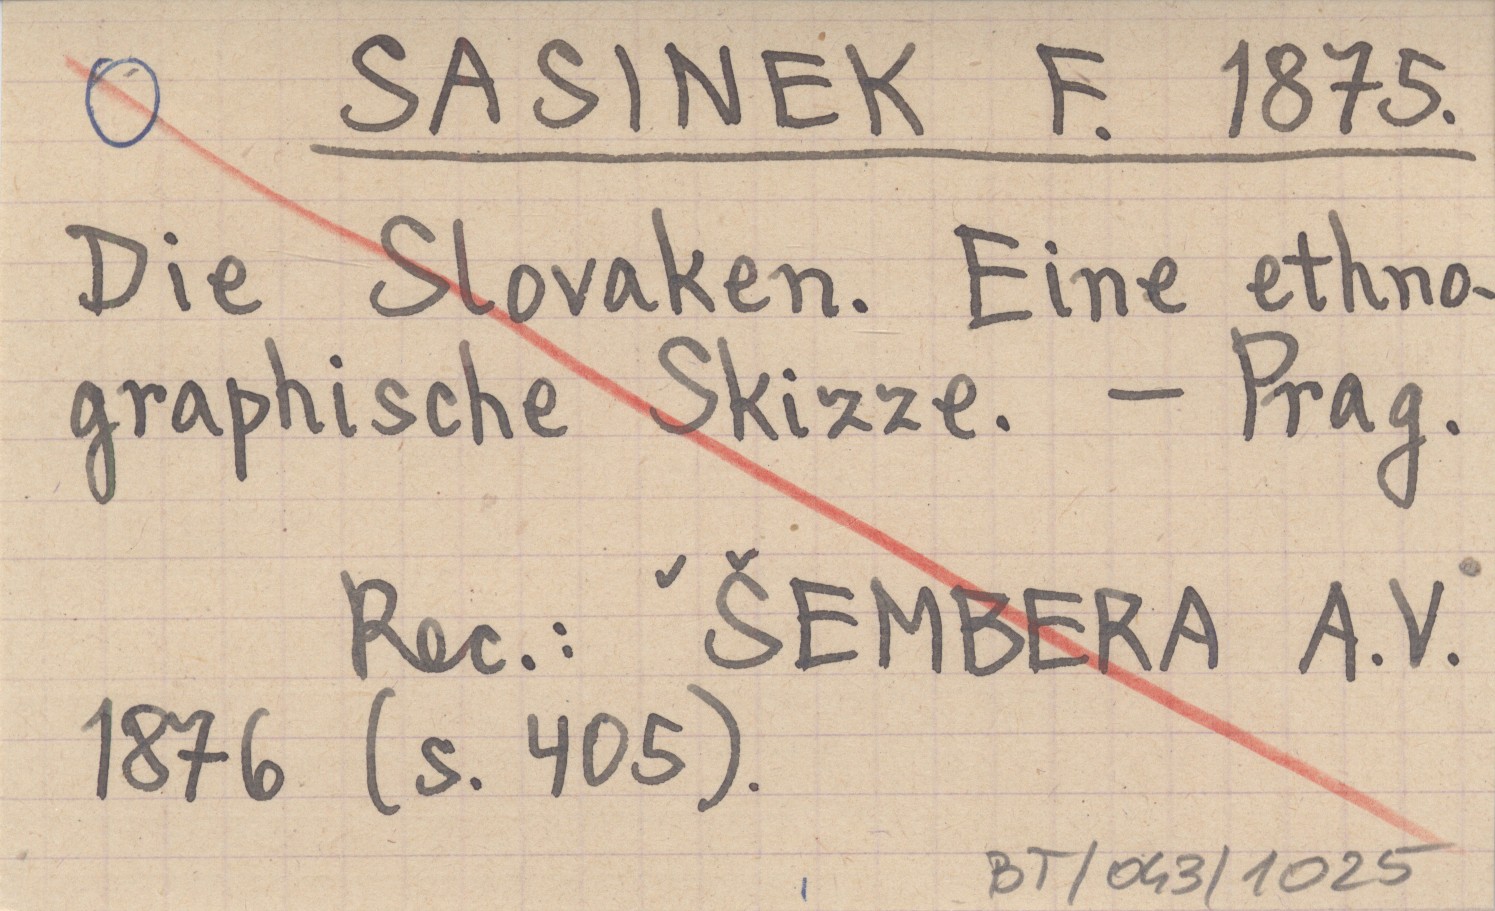 SASINEK F. 1875.
Die Slovaken. Eine ethno-
graphische Skizze. - Prag.
Rec.: ŠEMBERA A.V.
1876 (s. 405).
BT/043/1025